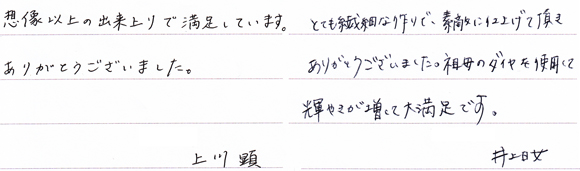 想像以上の出来上りで満足しています。
ありがとうございました。
上川 顕
とても繊細な作りで、素敵に仕上げて頂き
ありがとうございました。祖母のダイヤを使用して
輝やきが増して大満足です。
井上